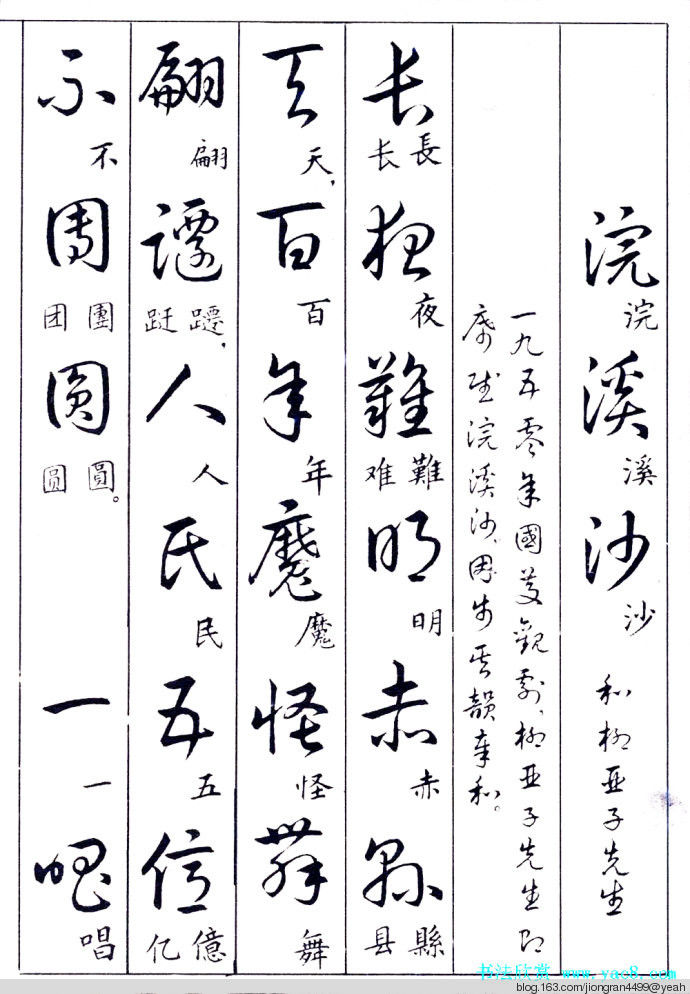 浣溪沙 和柳亞子先生
浣溪沙
一九五零年國慶觀劇、柳亞子先生即
席赋浣溪沙、因步其韻奉和。
长夜難明赤縣
長夜難明赤縣
长难县
天百年魔怪舞
天，百年魔怪舞
翩躚人民五億
翩躚，人民五億
跹亿
不團圓一唱
不團圓。一唱
团圆
书法欣赏 www.yac8.com
blog.163.com/jiongran4499@yeah